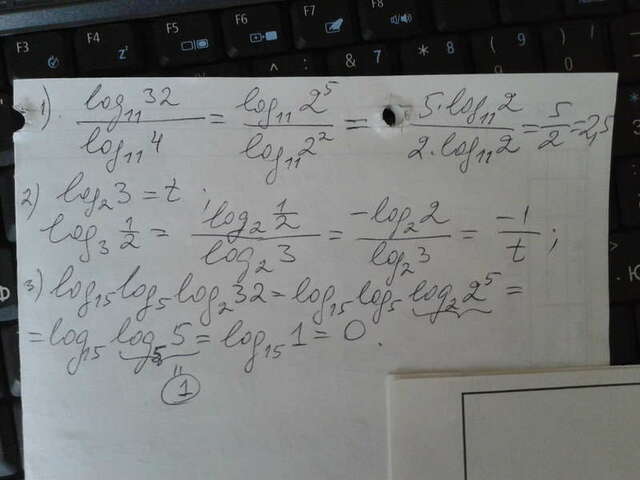 F3 F4 F5 F6 F7 F8
& 7 * 8 ( 9 )
1). log₁₁32 / log₁₁4 = log₁₁2⁵ / log₁₁2² = 5·log₁₁2 / 2·log₁₁2 = 5/2 = 2,5
2) log₂3 = t ;
log₃ 1/2 = log₂ 1/2 / log₂3 = -log₂2 / log₂3 = -1/t ;
3) log₁₅log₅log₂32 = log₁₅log₅ log₂2⁵ =
= log₁₅ log₅5 = log₁₅1 = 0.
" 
1